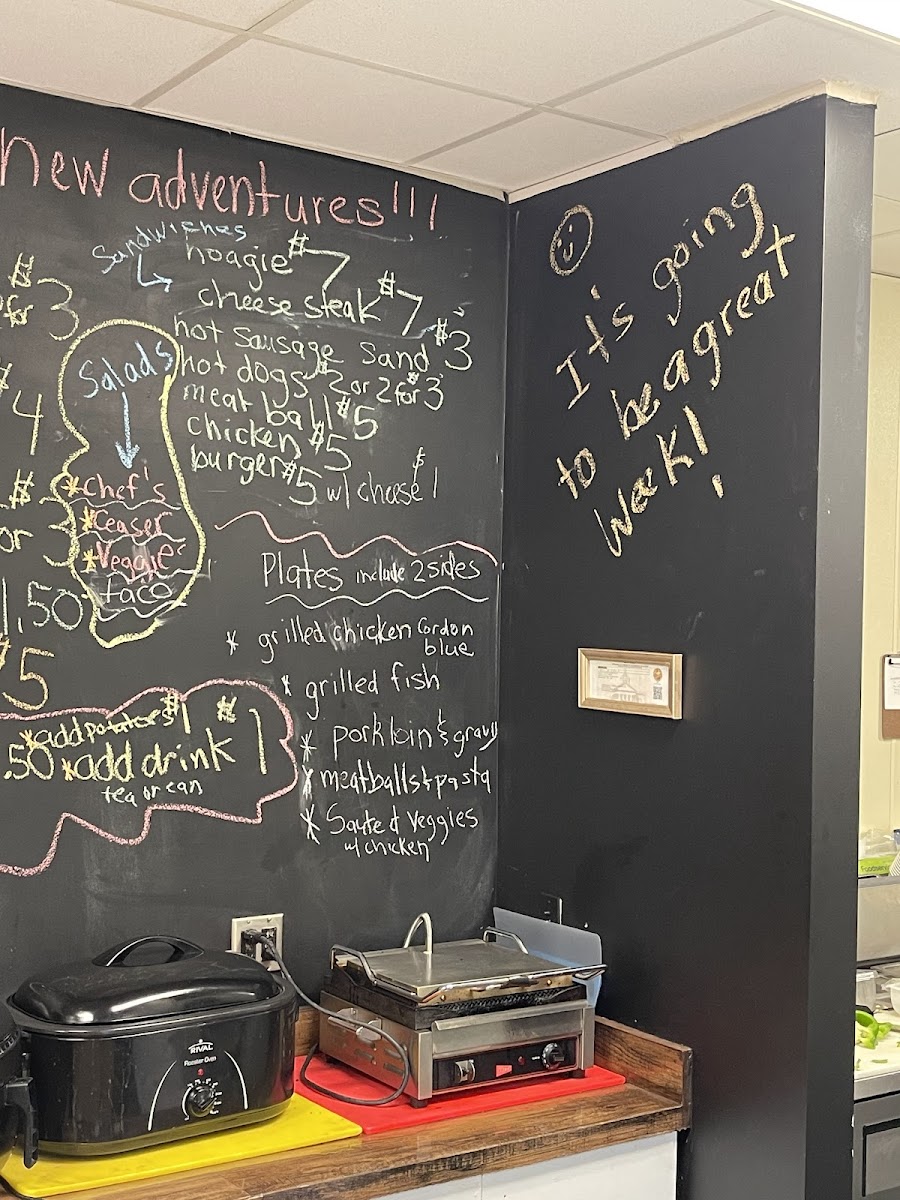 new adventures!!!
Sandwiches
hoagie $7
cheese steak $7
hot sausage sand $3
hot dogs $2 or 2 for $3
meat ball $5
chicken $5
burger $5 w/ cheese $1
$
for 3
$
4
$
or 3
1.50
5
Salads
*Chef's
*Ceaser
*Veggie
taco
Plates include 2 sides
* grilled chicken Cordon
blue
* grilled fish
* pork loin & gravy
* meatballs & pasta
* Sauted Veggies
w/ chicken
*add potatoes $1
.50 *add drink $1
tea or can
It's going
to be a great
week!
RIVAL
Roaster Oven